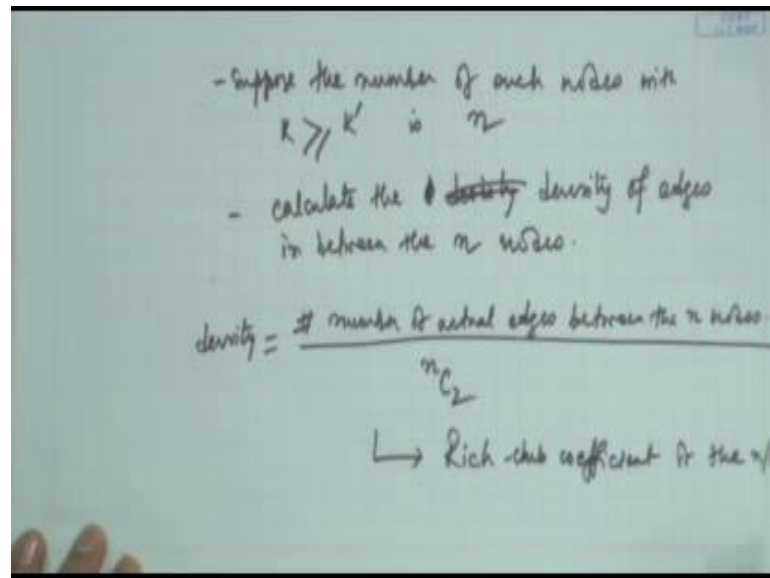 - Suppose the number of such nodes with
K ⩾ K' is n
- calculate the density of edges
in between the n nodes.
density = # number of actual edges between the n nodes.
ⁿC₂
↳ Rich-club coefficient of the n/